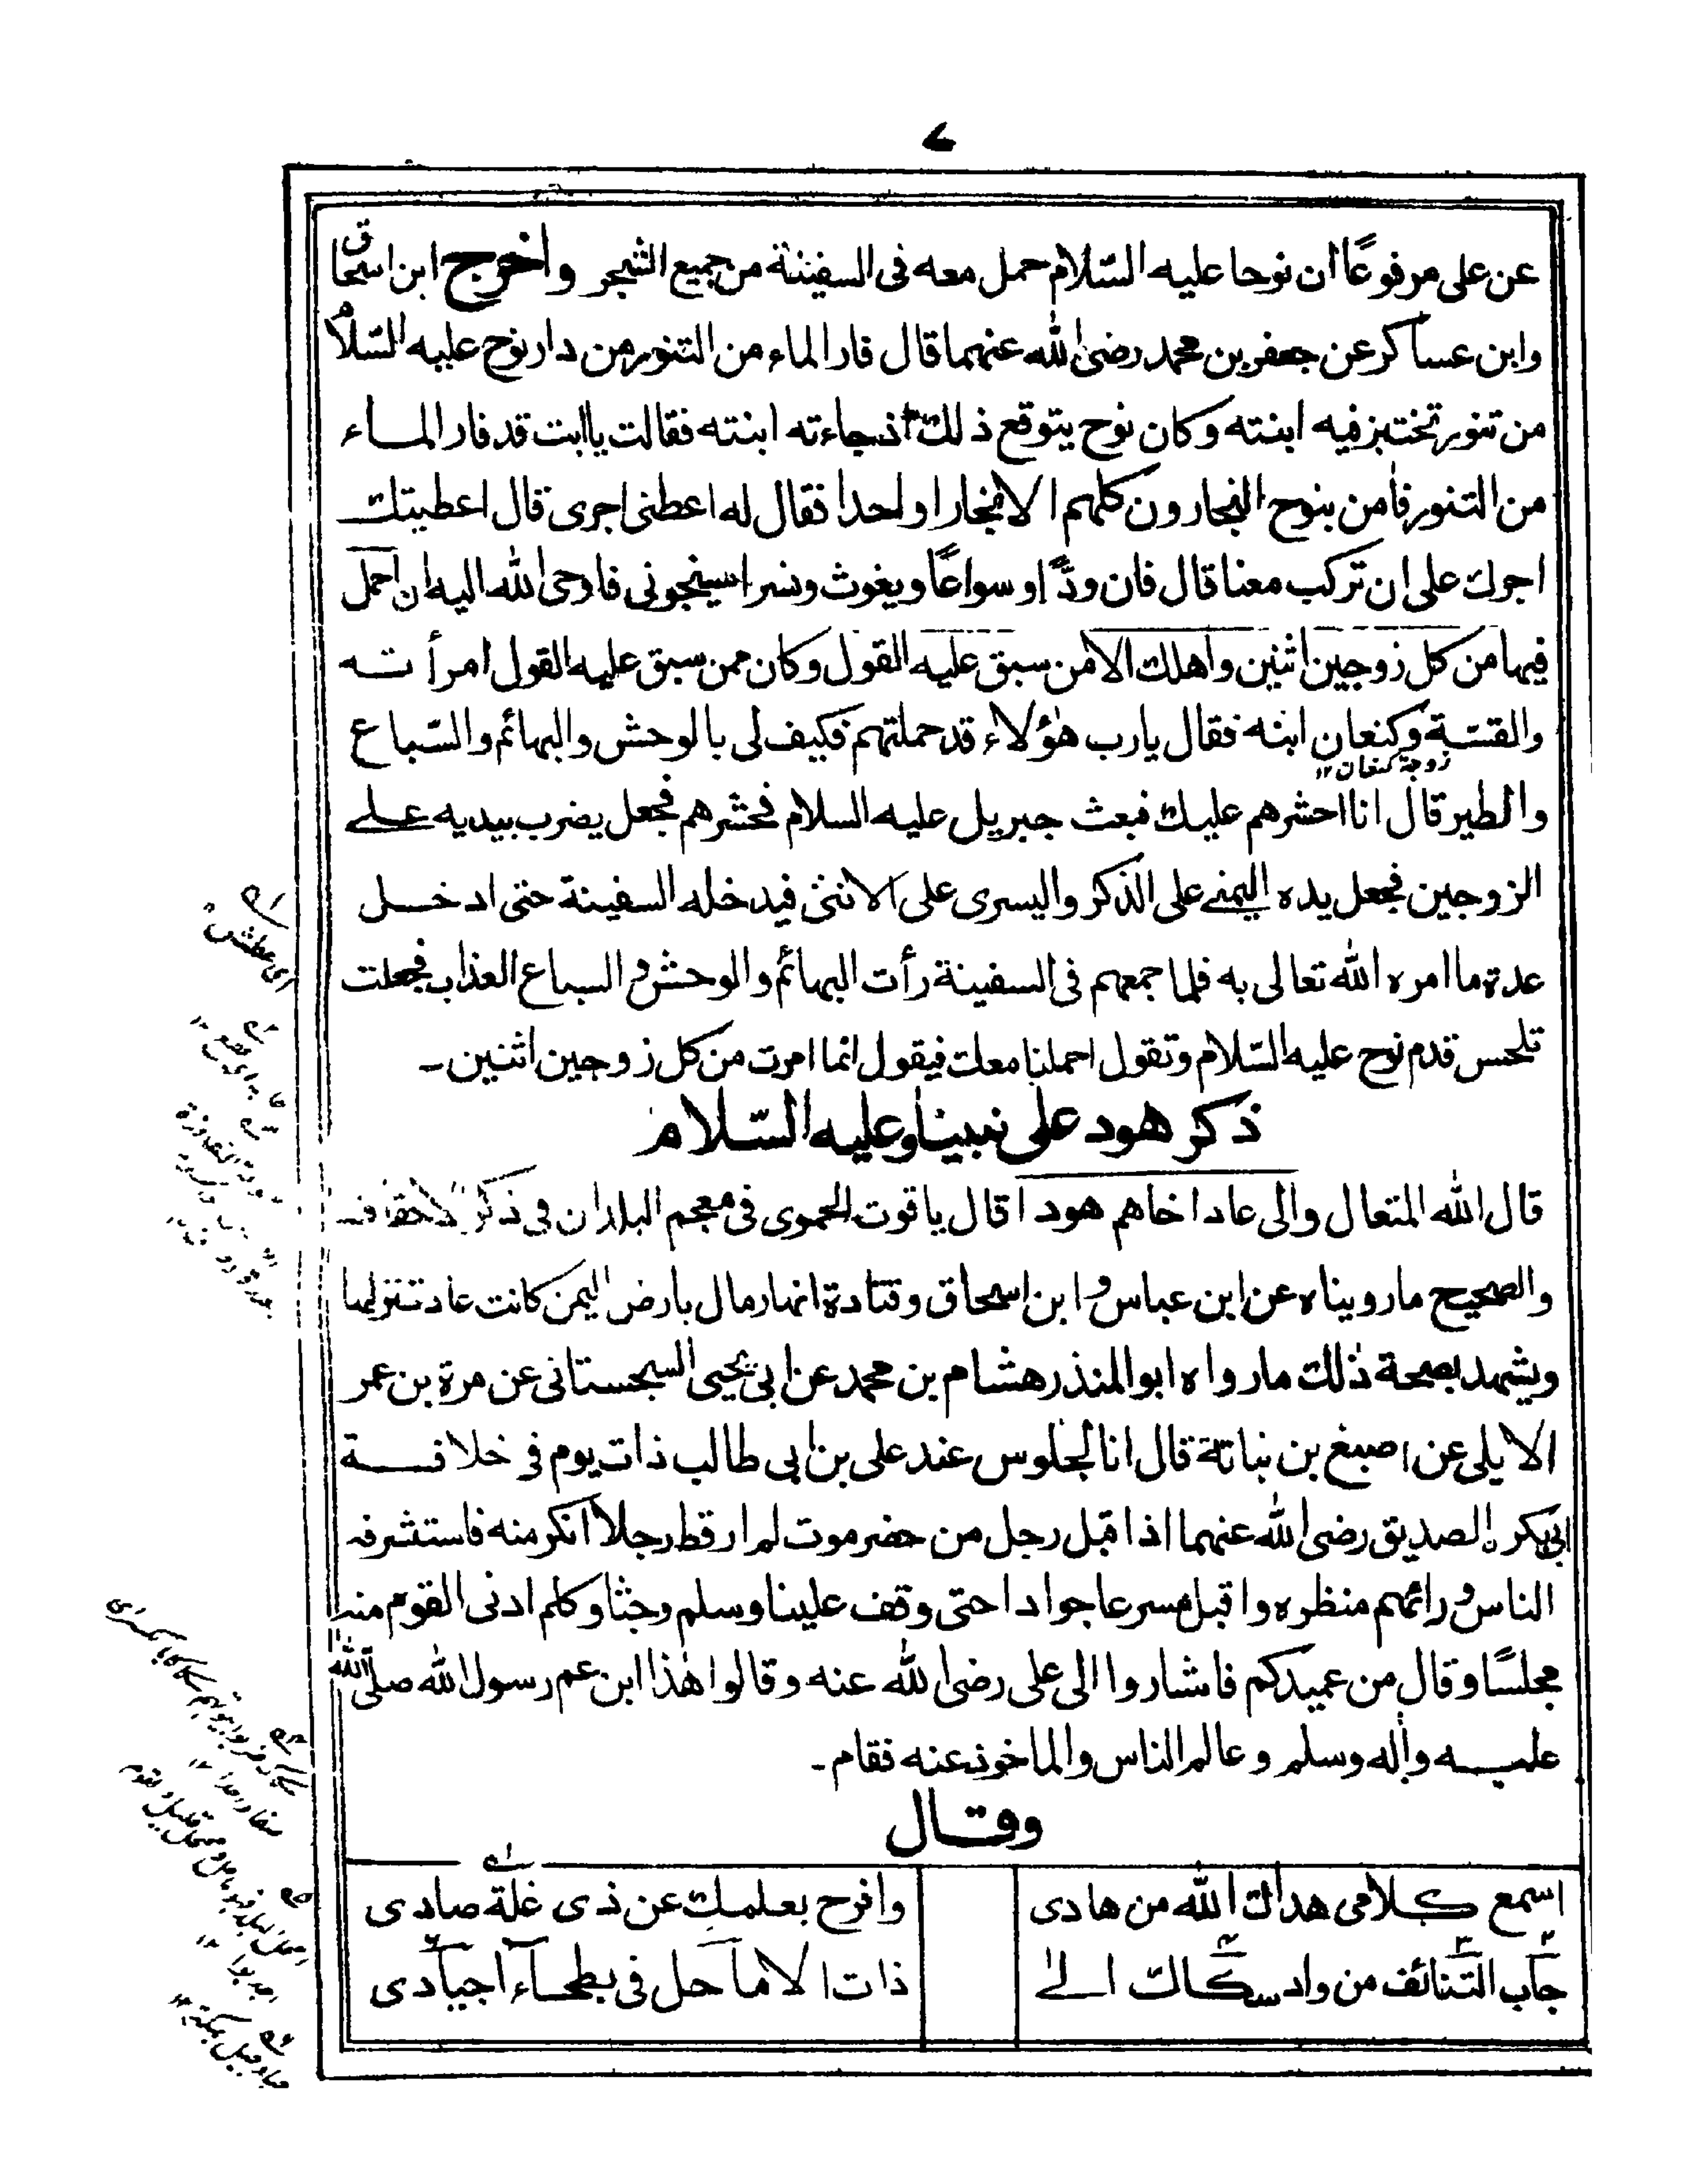 ۷
عن على مرفوعًا ان نوحا عليه السّلام حمل معه فى السفينة من جميع الشجر واخرج ابن اسحاق
وابن عساكر عن جعفر بن محمد رضى الله عنهما قال فار الماء من التنور من دار نوح عليه السّلام
من تنور تختبز فيه ابنته وكان نوح يتوقع ذلك اذ جاءته ابنته فقالت يا ابت قد فار الماء
من التنور فآمن بنوح النجارون كلهم الا نجارا واحدا فقال له اعطنى اجرى قال اعطيتك
اجرك على ان تركب معنا قال فان ودًّا وسواعًا ويغوث ونسرا سينجونى فاوحى الله اليه ان احمل
فيها من كل زوجين اثنين واهلك الا من سبق عليه القول وكان ممن سبق عليه القول امرأته
والقسّة وكنعان ابنه فقال يارب هٰؤلاء قد حملتهم فكيف لى بالوحش والبهائم والسّباع
زوجة كنعان ۱۲
والطير قال انا احشرهم عليك فبعث جبريل عليه السلام فحشرهم فجعل يضرب بيديه على
الزوجين فجعل يده اليمنے على الذكر واليسرى على الانثى فيدخله السفينة حتى ادخل
عدة ما امره الله تعالى به فلما جمعهم فى السفينة رأت البهائم والوحش والسباع العذاب فجعلت
تلحس قدم نوح عليه السّلام وتقول احملنا معك فيقول انما امرت من كل زوجين اثنين۔
ذكر هود على نبينا وعليه السّلام
قال الله المتعال والى عاد اخاهم هودا قال ياقوت الحموى فى معجم البلدان فى ذكر الاحقاف
والصحيح ما رويناه عن ابن عباس وابن اسحاق وقتادة انها رمال بارض اليمن كانت عاد تنزلها
ويشهد بصحة ذلك ما رواه ابو المنذر هشام بن محمد عن ابى يحيى السجستانى عن مرة بن عمر
الايلى عن اصبغ بن نباتة قال انا لجلوس عند على بن ابى طالب ذات يوم فى خلافة
ابى بكر الصديق رضى الله عنهما اذ اقبل رجل من حضرموت لم ار قط رجلا انكر منه فاستشرفه
الناس ورائهم منظره واقبل مسرعا جوادا حتى وقف علينا وسلم وجثا وكلم ادنى القوم منه
مجلسًا وقال من عميدكم فاشاروا الى على رضى الله عنه وقالوا هٰذا ابن عم رسول الله صلى الله
عليه وآله وسلم وعالم الناس والماخوذ عنه فقام۔
وقال
اسمع كلامى هداك الله من هادى وافرح بعلمك عن ذى غلة صادى
جاب التنائف من واد سكاك الى ذات الاماحل فى بطحآء اجيادى
اى عطش